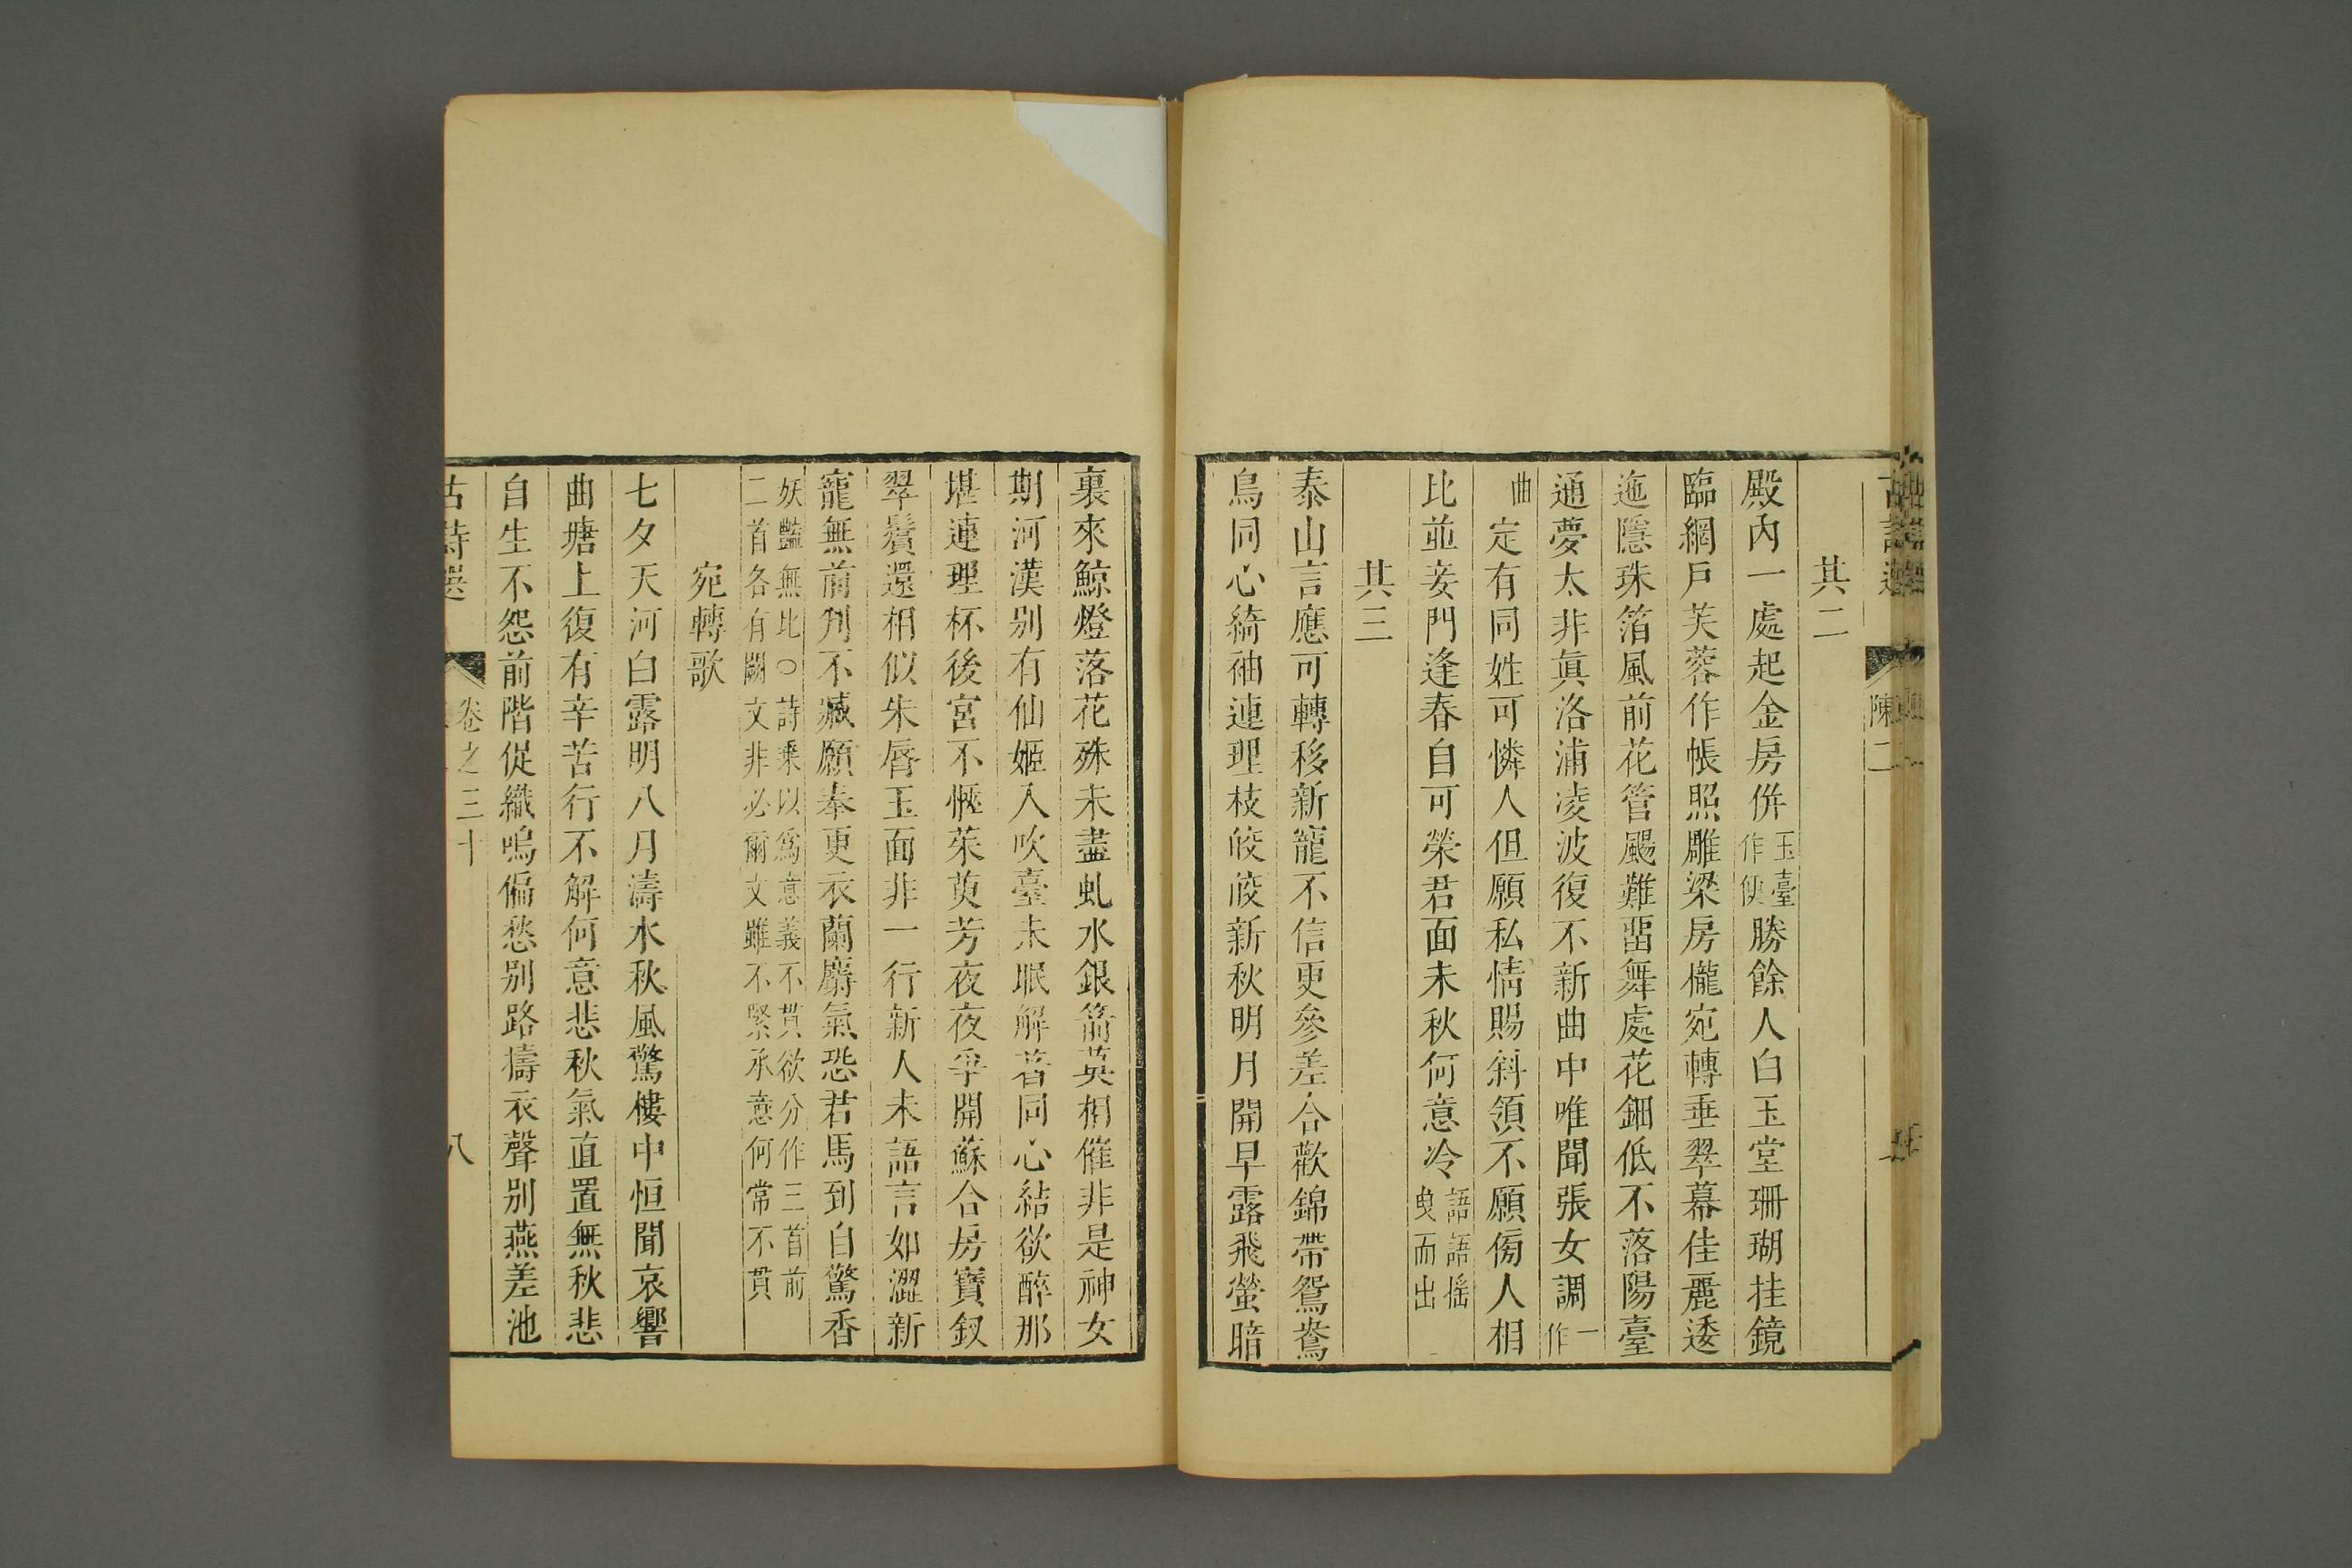 陳二
其二
殿內一處起金房併玉臺作便勝餘人白玉堂珊瑚挂鏡
臨網戶芙蓉作帳照雕梁房櫳宛轉垂翠幕佳麗逶
迤隱珠箔風前花管颺難畱舞處花鈿低不落陽臺
通夢太非眞洛浦凌波復不新曲中唯聞張女調一作
曲定有同姓可憐人但願私情賜斜領不願傍人相
比並妾門逢春自可榮君面未秋何意冷語語搖曳而出
其三
泰山言應可轉移新寵不信更參差合歡錦帶鴛鴦
鳥同心綺袖連理枝皎皎新秋明月開早露飛螢暗
裏來鯨燈落花殊未盡虬水銀箭莫相催非是神女
期河漢别有仙姬入吹臺未眠解著同心結欲醉那
堪連理杯後宮不愜茱萸芳夜夜爭開蘇合房寶釵
翠鬢還相似朱唇玉面非一行新人未語言如澀新
寵無前判不臧願奉更衣蘭麝氣恐君馬到自驚香
妖豔無比○詩乘以爲意義不貫欲分作三首前
二首各有闕文非必爾文雖不緊承意何常不貫
宛轉歌
七夕天河白露明八月濤水秋風驚樓中恒聞哀響
曲塘上復有辛苦行不解何意悲秋氣直置無秋悲
自生不怨前階促織鳴偏愁别路擣衣聲别燕差池
古詩選
卷之三十
八